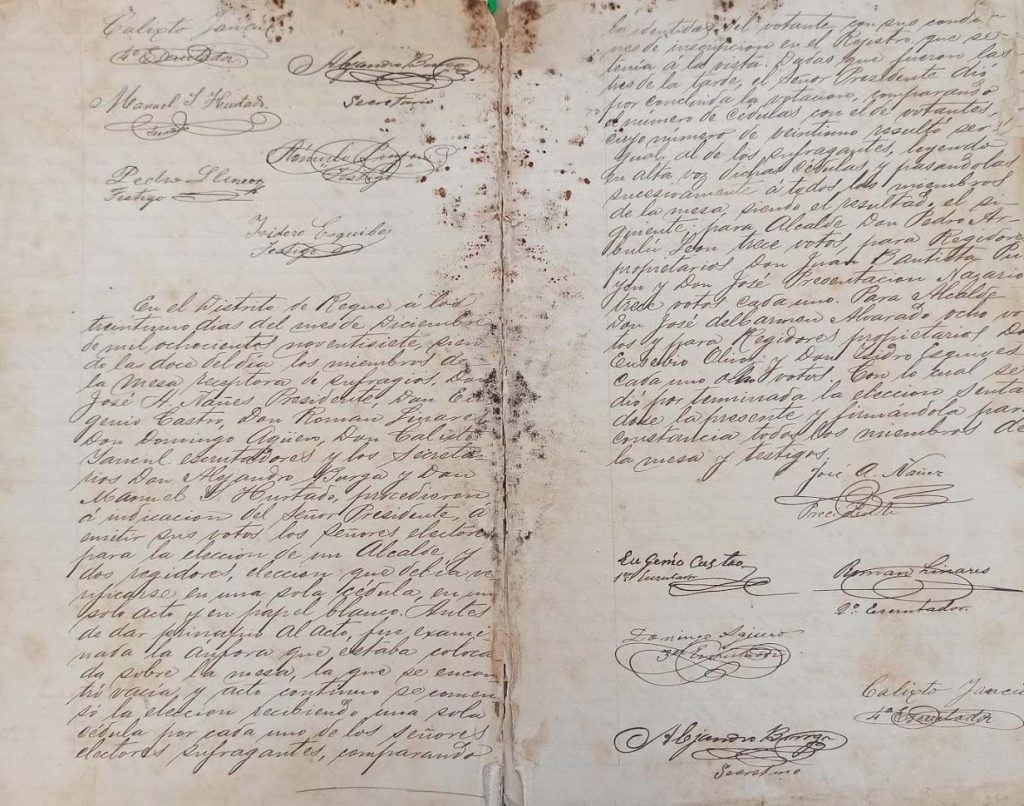 Calixto
4º Escrutador
Alejandro
Secretario
Manuel S. Hurtado.
Pedro
Testigo
Testigo
Isidero Esquibes
Testigo
En el Distrito de Reque á los
treintiuno dias del mes de Diciembre
de mil ochocientos noventisiete, sien
do las doce del dia los miembros de
la mesa receptora de sufragios, Don
José A. Náñes Presidente, Don Eu
genio Castro, Don Roman Linare
Don Domingo Agüero, Don Calisto
escrutadores y los Secreta
rios Don Alejandro y Don
Manuel S. Hurtado, procedieron
á indicacion del Señor Presidente, á
emitir sus votos los señores electore
para la eleccion de un Alcalde y
dos regidores, eleccion que debía ve
rificarse en una sola cédula, en un
solo acto y en papel blanco. Antes
de dar principio al acto, fué exami
nada la anfora que estaba coloca
da sobre la mesa, la que se encon
tró vacia, y acto continuo se comen
só la eleccion recibiendo una sola
cédula por cada uno de los señores
electores sufragantes, comparando
la identidad del votante con sus condi
nes de inscripcion en el Registro, que se
tenia á la vista. Dadas que fueron las
tres de la tarde, el Señor Presidente dió
por concluida la votacion, comparando
el número de cédulas con el de votantes,
cuyo número de veintiuno resultó ser
igual al de los sufragantes, leyendo
en alta voz dichas cédulas y pasandolas
sucesivamente á todos los miembros
de la mesa, siendo el resultado el si
guiente, para Alcalde Don Pedro Ar
bulú trece votos, para Regidore
propietarios Don Juan Bautista
y Don José Presentacion Nazario
trece votos cada uno. Para Alcalde
Don José del Carmen Alvarado ocho vo
tos y para Regidores propietarios Do
Eusebio y Don Isidro Esquives
cada uno ocho votos. Con lo cual se
dió por terminada la eleccion senta
dose la presente y firmandola para
constancia todos los miembros de
la mesa y testigos.
José A. Náñez
Presidente
Eugenio Castro
1er Escrutador
Roman Linares
2º Escrutador
Domingo Agüero
3er Escrutador
Calixto
4º Escrutador
Alejandro
Secretario